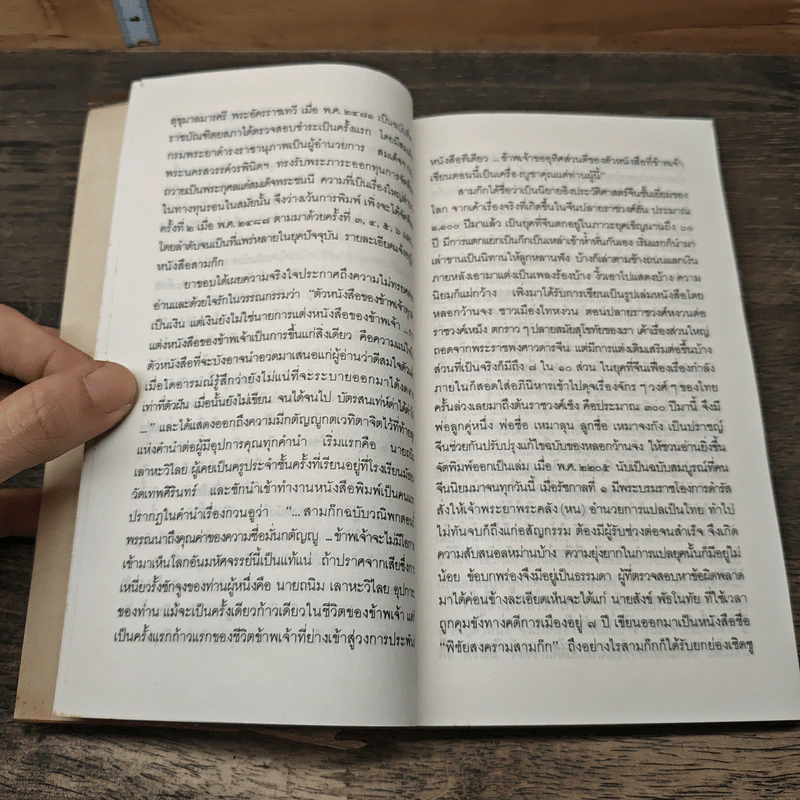 สุขุมาลมารศรี พระอัครราชเทวี เมื่อ พ.ศ. ๒๔๗๑ เป็นฉบับที่
ราชบัณฑิตยสภาได้ตรวจสอบชำระเป็นครั้งแรก โดยมีสมเด็จ
กรมพระยาดำรงราชานุภาพเป็นผู้อำนวยการ สมเด็จฯ
พระนครสวรรค์วรพินิตฯ ทรงรับพระภาระออกทุนการจัด
ถวายเป็นพระกุศลแด่สมเด็จพระชนนี ความที่เป็นเรื่องใหญ่
ในทางทุนรอนในสมัยนั้น จึงว่างเว้นการพิมพ์ เพิ่งจะได้จัด
ครั้งที่ ๒ เมื่อ พ.ศ. ๒๔๘๘ ตามมาด้วยครั้งที่ ๓, ๔, ๕, ๖
โดยลำดับจนเป็นที่แพร่หลายในยุคปัจจุบัน รายละเอียดแจ้งอยู่
หนังสือสามก๊ก
ยาขอบได้เผยความจริงใจประกาศถึงความไม่ทรยศต่อ
อ่านและด้วยใจรักในวรรณกรรมว่า "ตัวหนังสือของข้าพเจ้าทุก
เป็นเงิน แต่เงินยังไม่ใช่นายการแต่งหนังสือของข้าพเจ้า ...
แต่งหนังสือของข้าพเจ้าเป็นการขึ้นแก่สิ่งเดียว คือความแน่ใจ
ตัวหนังสือที่จะบังอาจนำอวดมาเสนอแก่ผู้อ่านว่าดีสมใจตัว
เมื่อใดอารมณ์รู้สึกว่ายังไม่แน่ที่จะระบายออกมาได้งดงาม
เท่าที่ตัวฝัน เมื่อนั้นยังไม่เขียน จนได้จนไป บัตรสนเท่ห์ด่าได้ด่า
..." และได้แสดงออกถึงความมีกตัญญูกตเวทิตาจิตไว้ที่ท้าย
แห่งคำนำต่อผู้มีอุปการคุณทุกคำนำ เริ่มแรกคือ นายถนิม
เลาหะวิไลย ผู้เคยเป็นครูประจำชั้นครั้งที่เรียนอยู่ที่โรงเรียนมัธยม
วัดเทพศิรินทร์ และชักนำเข้าทำงานหนังสือพิมพ์เป็นคนแรก
ปรากฏในคำนำเรื่องกวนอูว่า "... สามก๊กฉบับวณิพกตอน
พรรณนาถึงคุณค่าของความซื่อมั่นกตัญญู ... ข้าพเจ้าจะไม่มีโอกาส
เข้ามาเห็นโลกอันมหัศจรรย์นี้เป็นแท้แน่ ถ้าปราศจากเสียซึ่งการ
เหนี่ยวรั้งชักจูงของท่านผู้หนึ่งคือ นายถนิม เลาหะวิไลย อุปการะ
ของท่าน แม้จะเป็นครั้งเดียวก้าวเดียวในชีวิตของข้าพเจ้า แต่
เป็นครั้งแรกก้าวแรกของชีวิตข้าพเจ้าที่ย่างเข้าสู่วงการประพันธ์
หนังสือทีเดียว ... ข้าพเจ้าขออุทิศส่วนดีของตัวหนังสือที่ข้าพเจ้า
เขียนตอนนี้เป็นเครื่องบูชาคุณแด่ท่านผู้นี้"
สามก๊กได้ชื่อว่าเป็นนิยายอิงประวัติศาสตร์จีนชั้นเยี่ยมของ
โลก จากเค้าเรื่องจริงที่เกิดขึ้นในจีนปลายราชวงศ์ฮั่น ประมาณ
๑,๑๐๐ ปีมาแล้ว เป็นยุคที่จีนตกอยู่ในภาวะยุคเข็ญนานถึง ๖๐
ปี มีการแตกแยกเป็นก๊กเป็นเหล่าเข้าห้ำหั่นกันเอง เริ่มแรกก็นำมา
เล่าขานเป็นนิทานให้ลูกหลานฟัง บ้างก็เล่าตามข้างถนนแลกเงิน
ภายหลังเอามาแต่งเป็นเพลงร้องบ้าง งิ้วเอาไปแสดงบ้าง ความ
นิยมก็แผ่กว้าง เพิ่งมาได้รับการเขียนเป็นรูปเล่มหนังสือโดย
หลอกว้านจง ชาวเมืองไทหงวน ตอนปลายราชวงศ์หงวนต่อ
ราชวงศ์เหม็ง ตกราว ๆ ปลายสมัยสุโขทัยของเรา เค้าเรื่องส่วนใหญ่
ถอดจากพระราชพงศาวดารจีน แต่มีการแต่งเติมเสริมต่อขึ้นบ้าง
ส่วนที่เป็นจริงก็มีถึง ๗ ใน ๑๐ ส่วน ในยุคที่จีนเฟื่องเรื่องกำลัง
ภายในก็สอดใส่อภินิหารเข้าไปดุจเรื่องจักร ๆ วงศ์ ๆ ของไทย
ครั้นล่วงเลยมาถึงต้นราชวงศ์เช็ง คือประมาณ ๓๐๐ ปีมานี้ จึงมี
พ่อลูกคู่หนึ่ง พ่อชื่อ เหมาลุน ลูกชื่อ เหมาจงกัง เป็นปราชญ์
จีนช่วยกันปรับปรุงแก้ไขฉบับของหลอกว้านจง ให้ชวนอ่านยิ่งขึ้น
จัดพิมพ์ออกเป็นเล่ม เมื่อ พ.ศ. ๒๒๐๕ นับเป็นฉบับสมบูรณ์ที่คน
จีนนิยมมาจนทุกวันนี้ เมื่อรัชกาลที่ ๑ มีพระบรมราชโองการดำรัส
สั่งให้เจ้าพระยาพระคลัง (หน) อำนวยการแปลเป็นไทย ทำไป
ไม่ทันจบก็ถึงแก่อสัญกรรม ต้องมีผู้รับช่วงต่อจนสำเร็จ จึงเกิด
ความสับสนอลหม่านบ้าง ความยุ่งยากในการแปลยุคนั้นก็มีอยู่ไม่
น้อย ข้อบกพร่องจึงมีอยู่เป็นธรรมดา ผู้ที่ตรวจสอบหาข้อผิดพลาด
มาได้ค่อนข้างละเอียดเห็นจะได้แก่ นายสังข์ พัธโนทัย ที่ใช้เวลา
ถูกคุมขังทางคดีการเมืองอยู่ ๗ ปี เขียนออกมาเป็นหนังสือชื่อ
"พิชัยสงครามสามก๊ก" ถึงอย่างไรสามก๊กก็ได้รับยกย่องเชิดชู